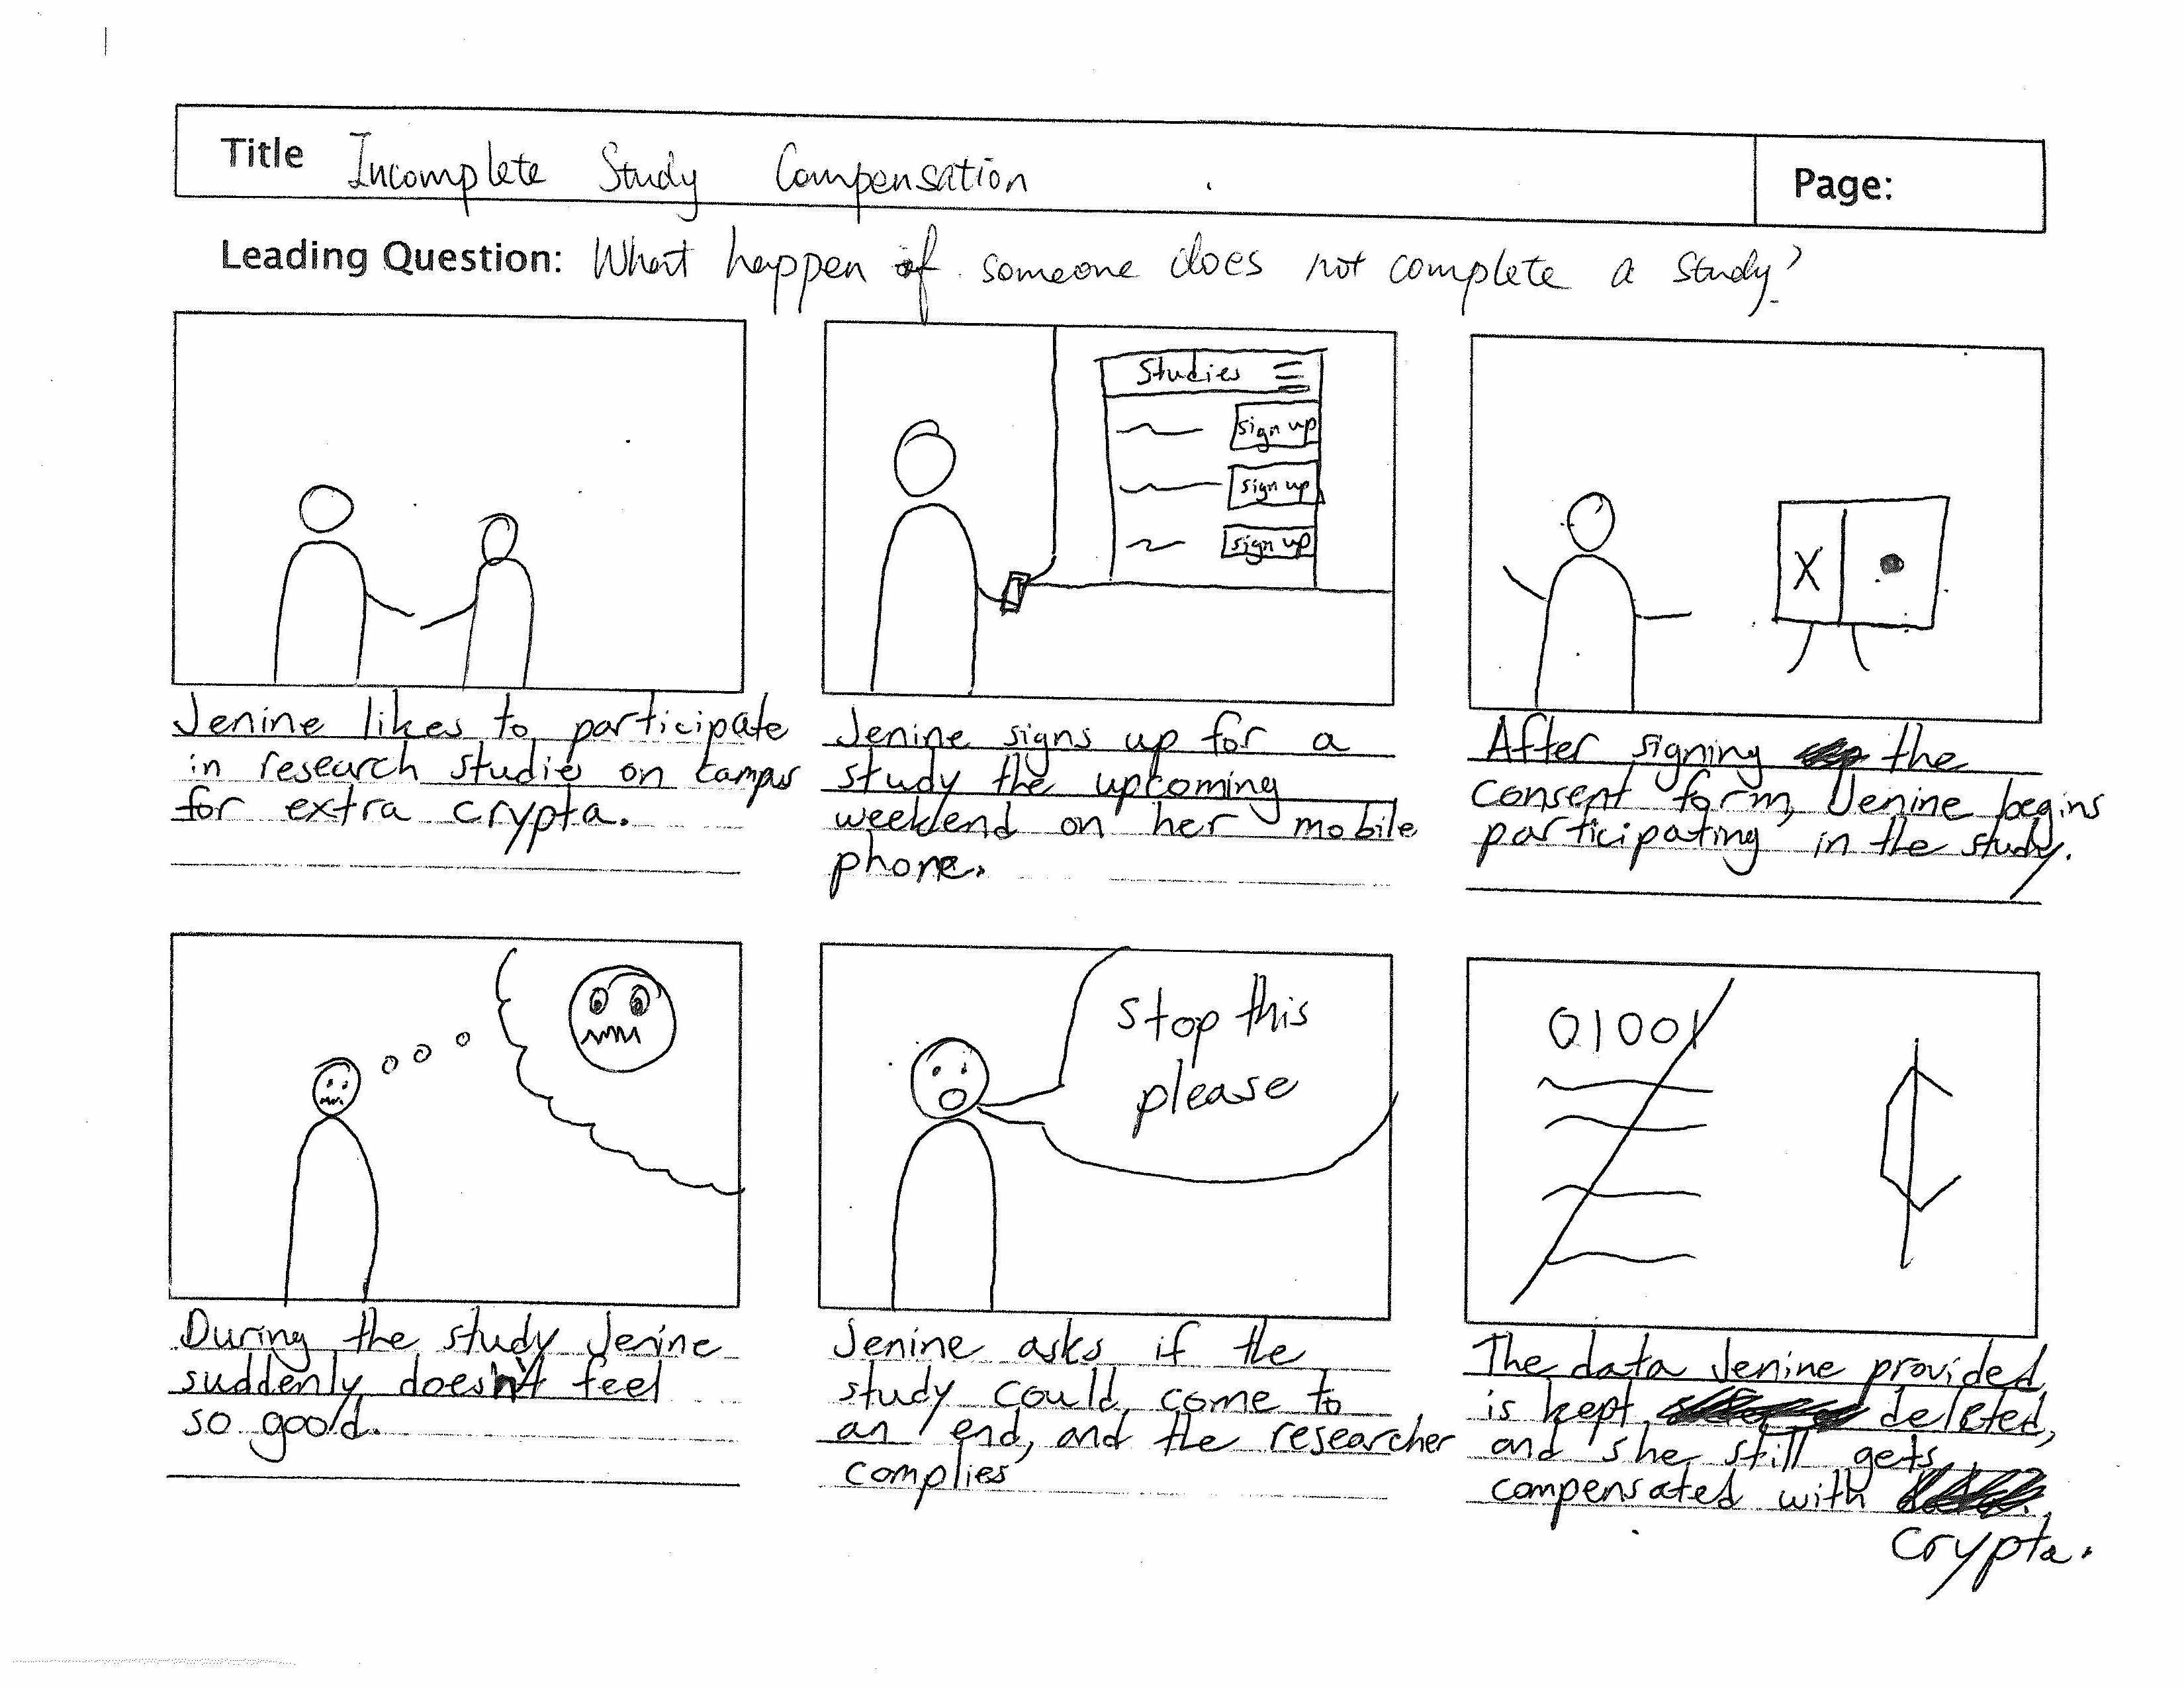 Title Incomplete Study Compensation
Page:
Leading Question: What happen if someone does not complete a study?
Studies
sign up
sign up
sign up
X
Jenine likes to participate
in research studies on campus
for extra crypta.
Jenine signs up for a
study the upcoming
weekend on her mobile
phone.
After signing the
consent form, Jenine begins
participating in the study.
stop this
please
01001
¢
During the study Jenine
suddenly doesn't feel
so good.
Jenine asks if the
study could come to
an end, and the researcher
complies
The data Jenine provided
is kept deleted,
and she still gets
compensated with
crypta.